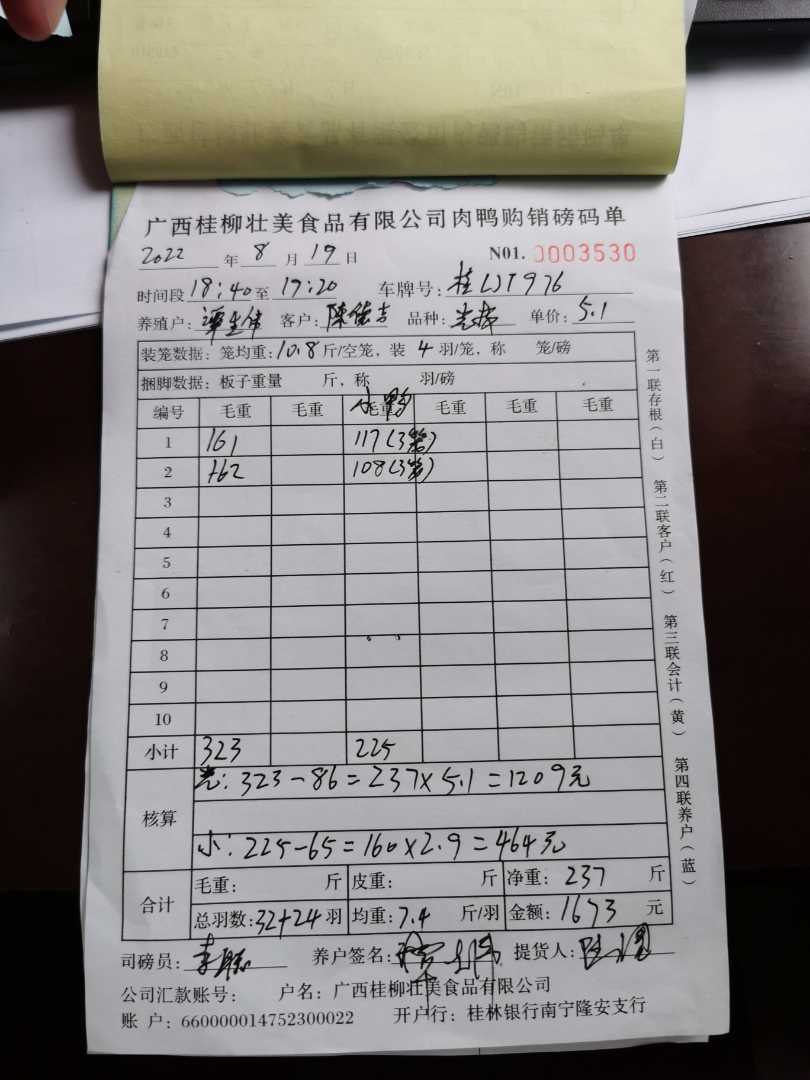 广西桂柳壮美食品有限公司肉鸭购销磅码单
2022 年 8 月 19 日 N01. 0003530
时间段 18:40 至 19:20 车牌号: 桂
养殖户: 客户: 陈 品种: 单价: 5.1
装笼数据: 笼均重: 10.8 斤/空笼, 装 4 羽/笼, 称 笼/磅
捆脚数据: 板子重量 斤, 称 羽/磅
编号 毛重 毛重 小鸭 毛重 毛重 毛重 毛重
1 161 117(3笼)
2 162 108(3笼)
3
4
5
6
7
8
9
10
小计 323 225
核算
光: 323-86=237×5.1=1209元
小: 225-65=160×2.9=464元
合计
毛重: 斤 皮重: 斤 净重: 237 斤
总羽数: 32+24 羽 均重: 7.4 斤/羽 金额: 1673 元
司磅员: 养户签名: 提货人:
公司汇款账号: 户名: 广西桂柳壮美食品有限公司
账 户: 660000014752300022 开户行: 桂林银行南宁隆安支行
第一联存根(白) 第二联客户(红) 第三联会计(黄) 第四联养户(蓝)